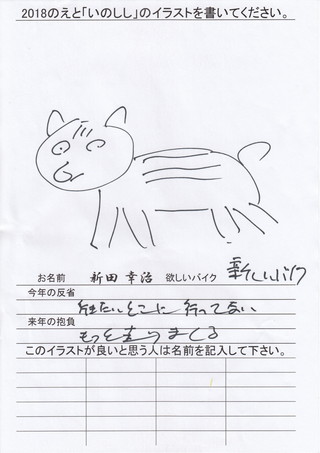 2018のえと「いのしし」のイラストを書いてください。
お名前 新田 幸治 欲しいバイク 新しいバイク
今年の反省
行きたいとこに 行ってない
来年の抱負
もっと走りまくる
このイラストが良いと思う人は名前を記入して下さい。